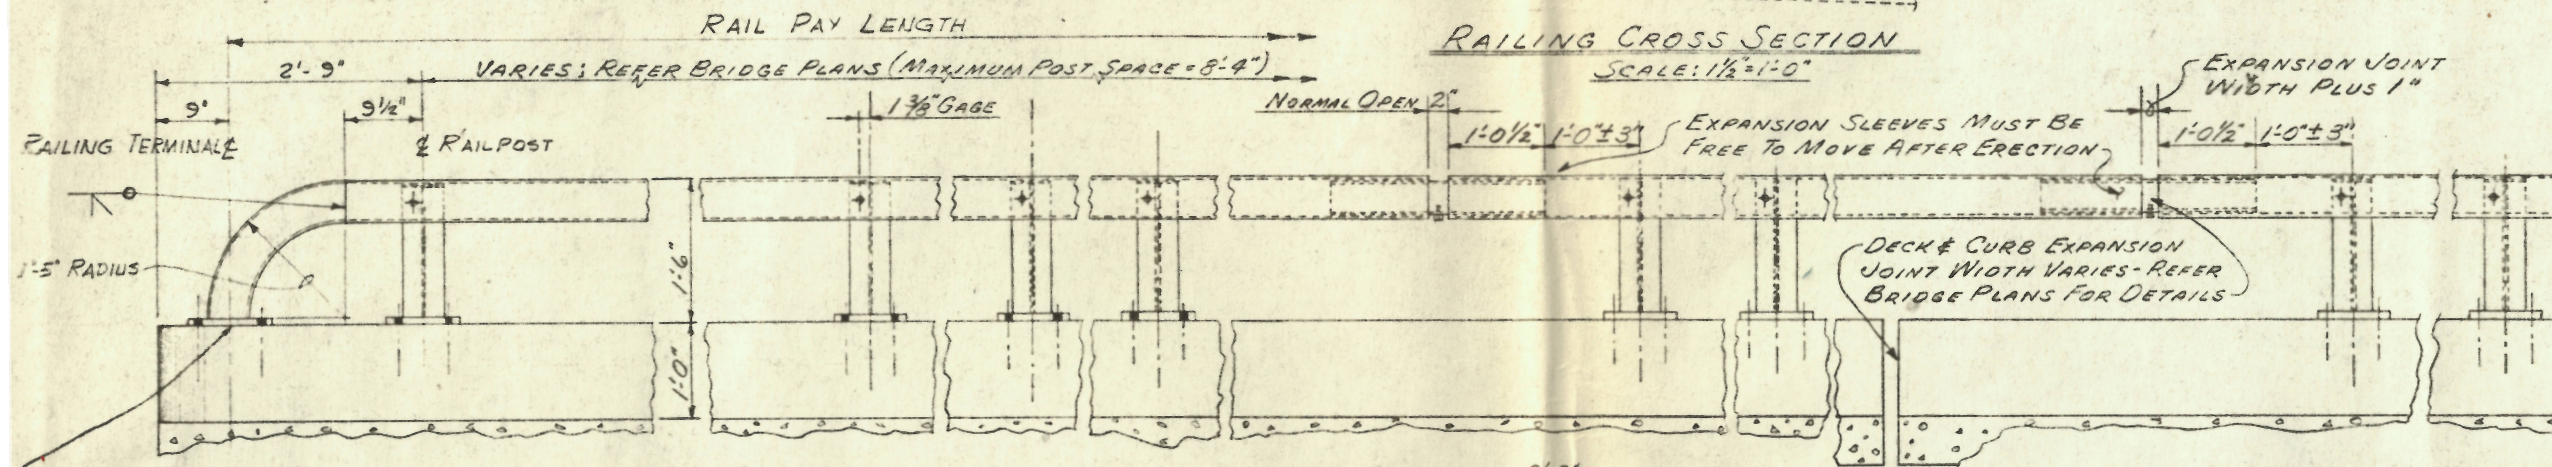 RAIL PAY LENGTH
RAILING CROSS SECTION
SCALE: 1½"=1'-0"
2'-9"
VARIES; REFER BRIDGE PLANS (MAXIMUM POST SPACE = 8'-4")
EXPANSION JOINT
WIDTH PLUS 1"
9"
9½"
1⅜" GAGE
NORMAL OPEN 2"
RAILING TERMINAL ℄
℄ RAILPOST
1'-0½"
1'-0"±3"
EXPANSION SLEEVES MUST BE
FREE TO MOVE AFTER ERECTION
1'-0½"
1'-0"±3"
1'-5" RADIUS
1'-6"
DECK & CURB EXPANSION
JOINT WIDTH VARIES-REFER
BRIDGE PLANS FOR DETAILS
1'-0"